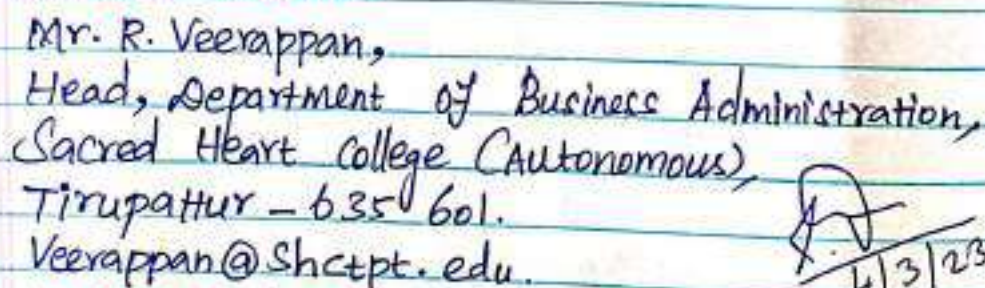 Mr. R. Veerappan,
Head, Department of Business Administration,
Sacred Heart College (Autonomous),
Tirupattur - 635 601.
Veerappan@Shctpt.edu.
4/3/23